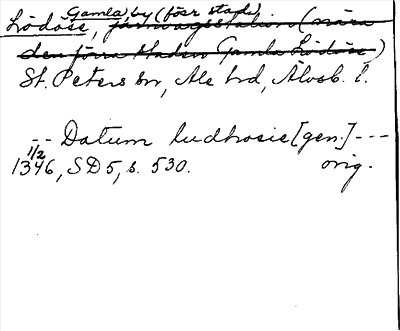 Gamla, by (förr stad),
Lödöse, järnvägsstation (nära
den förra staden Gamla Lödöse)
St. Peters sn, Ale hd, Älvsb. l.
-- Datum ludhosie [gen.] ---
1/2
1346, SD 5, s. 530. orig.